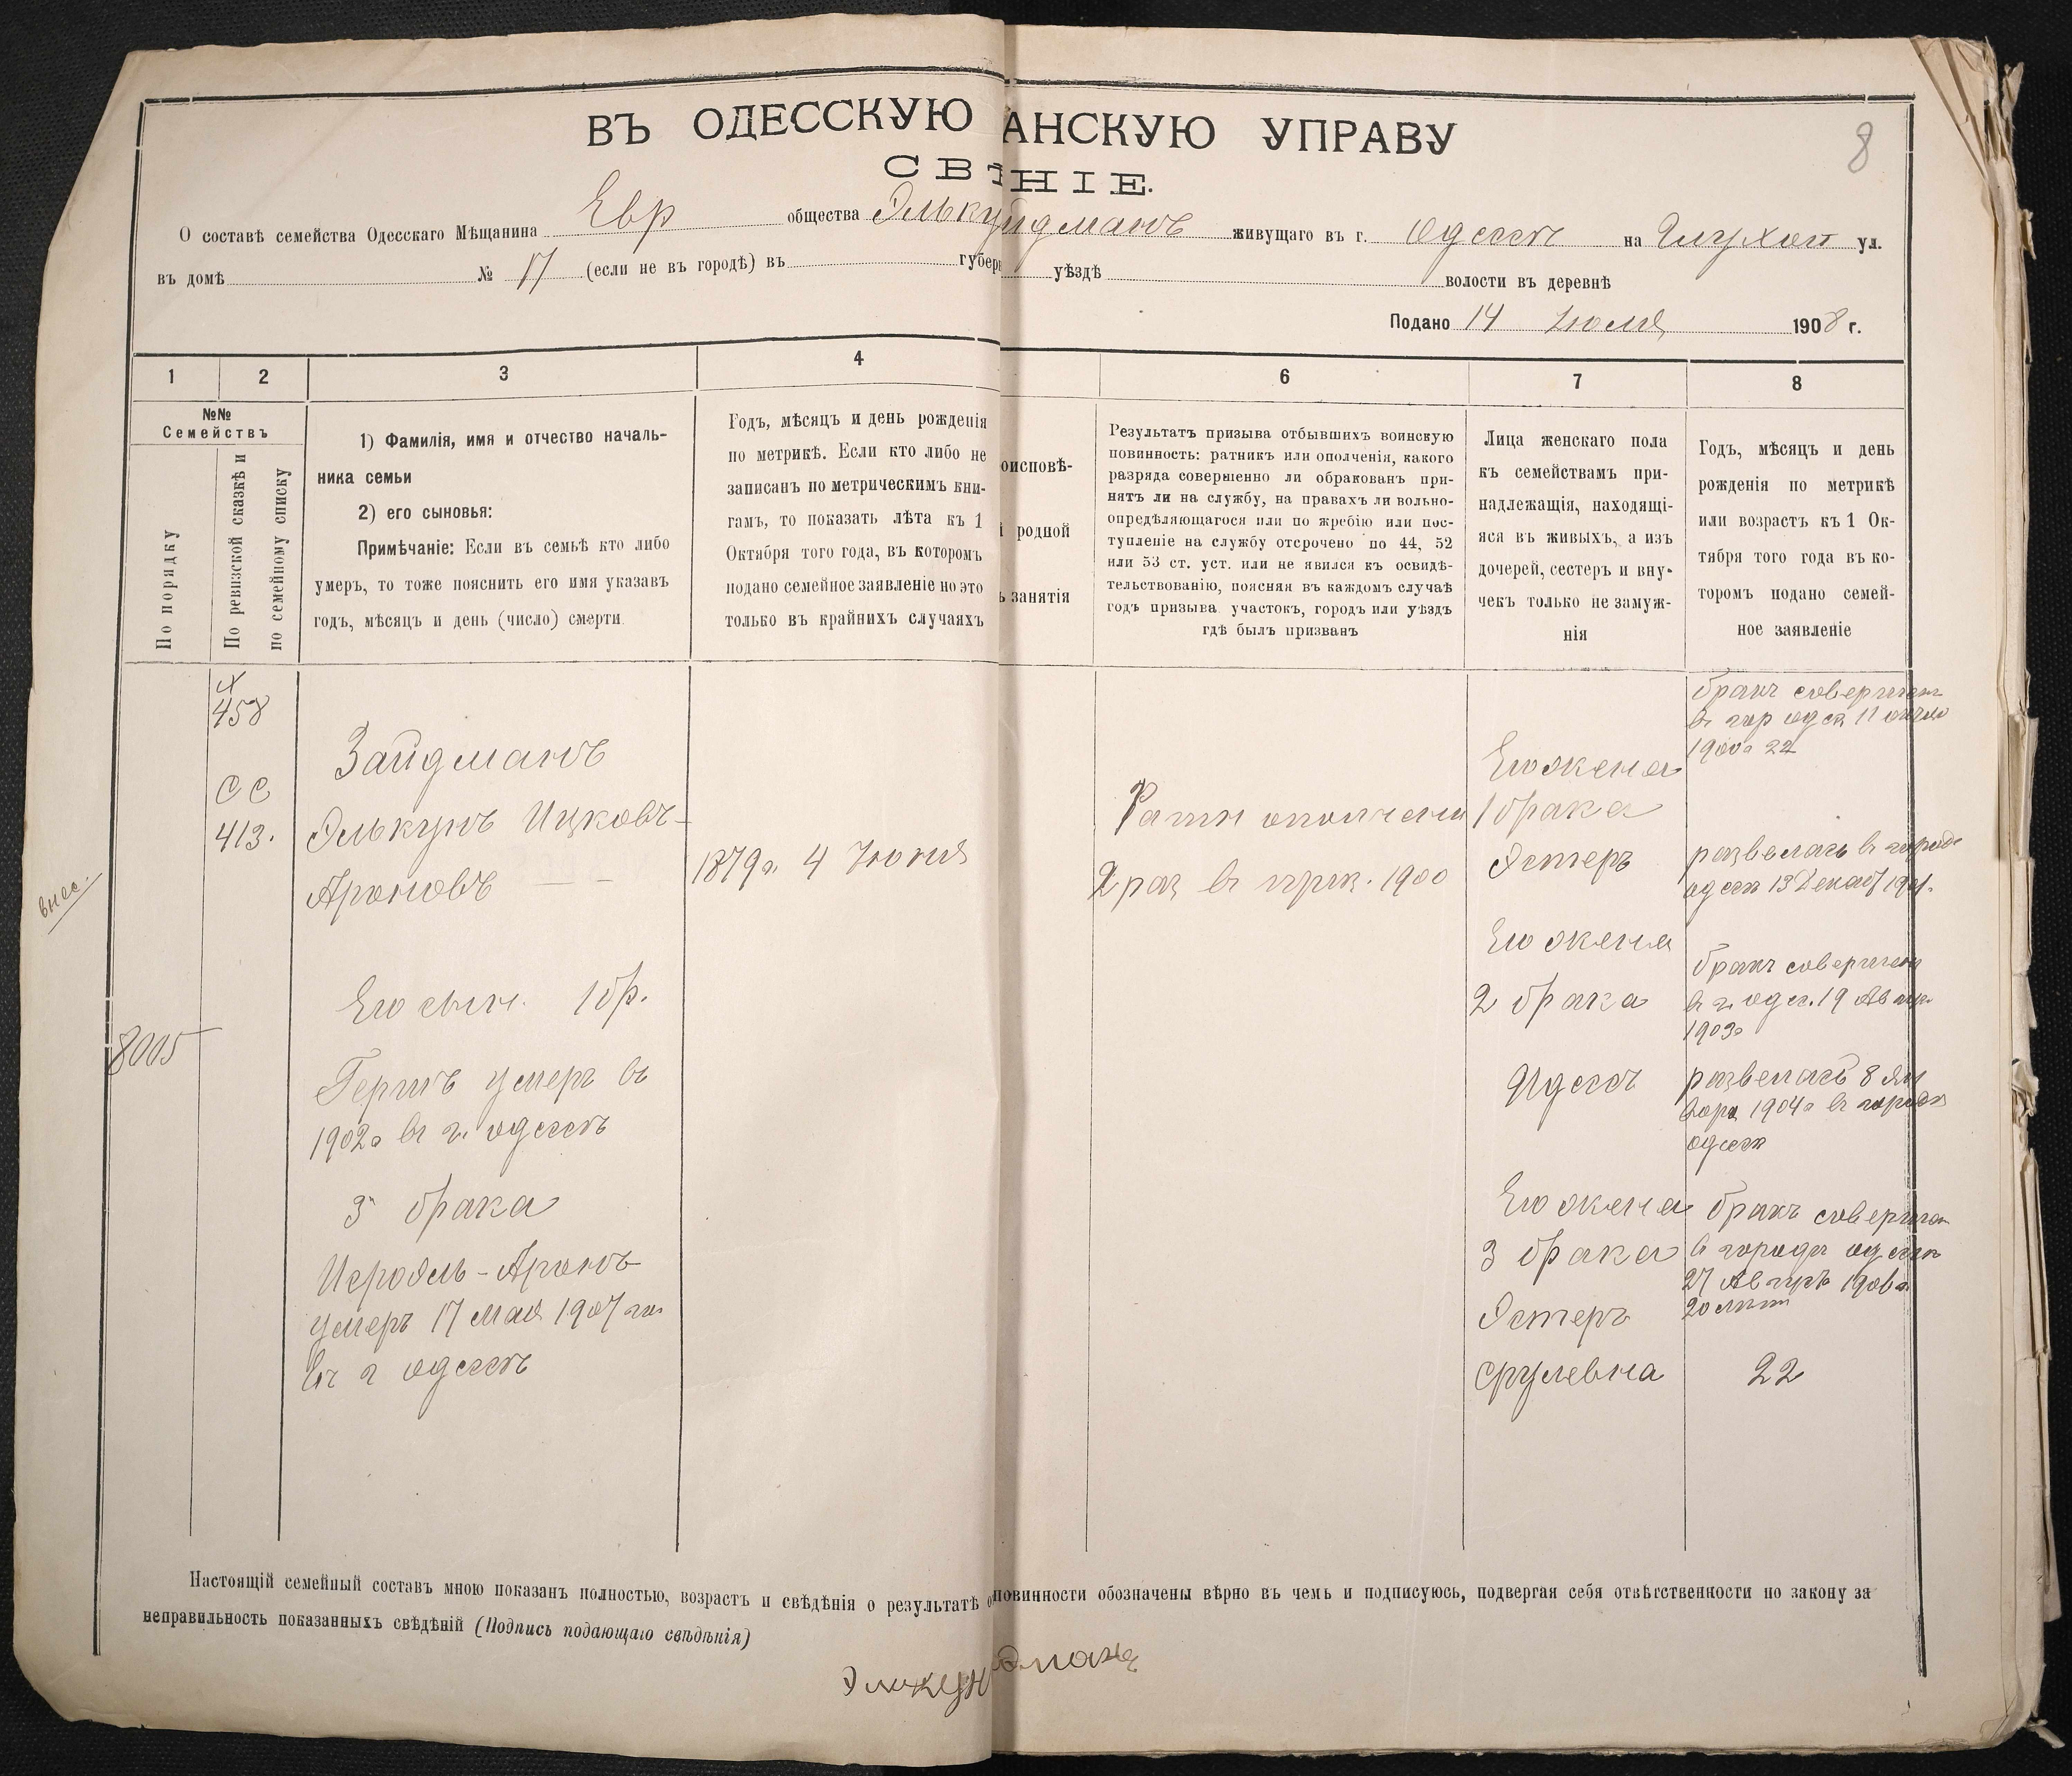 8
ВЪ ОДЕССКУЮ АНСКУЮ УПРАВУ
СВѢНІЕ.
О составѣ семейства Одесскаго Мѣщанина Евр общества Элькуйдманъ живущаго въ г. Одессѣ на Глухой ул.
въ домѣ № 17 (если не въ городѣ) въ губерн уѣздѣ волости въ деревнѣ
Подано 14 Іюля 1908 г.
1 2 3 4 6 7 8
№№
Семействъ
По порядку
По ревизской сказкѣ и
по семейному списку
1) Фамилія, имя и отчество началь-
ника семьи
2) его сыновья:
Примѣчаніе: Если въ семьѣ кто либо
умеръ, то тоже пояснить его имя указавъ
годъ, мѣсяцъ и день (число) смерти
Годъ, мѣсяцъ и день рожденія
по метрикѣ. Если кто либо не
записанъ по метрическимъ кни-
гамъ, то показать лѣта къ 1
Октября того года, въ которомъ
подано семейное заявленіе но это
только въ крайнихъ случаяхъ
оисповѣ-
і родной
ь занятія
Результатъ призыва отбывшихъ воинскую
повинность: ратникъ или ополченія, какого
разряда совершенно ли обракованъ при-
нятъ ли на службу, на правахъ ли вольно-
опредѣляющагося или по жребію или пос-
тупленіе на службу отсрочено по 44, 52
или 53 ст. уст. или не явился къ освидѣ-
тельствованію, поясняя въ каждомъ случаѣ
годъ призыва участокъ, городъ или уѣздъ
гдѣ былъ призванъ
Лица женскаго пола
къ семействамъ при-
надлежащія, находящі-
яся въ живыхъ, а изъ
дочерей, сестеръ и вну-
чекъ только не замуж-
нія
Годъ, мѣсяцъ и день
рожденія по метрикѣ
или возрастъ къ 1 Ок-
тября того года въ ко-
торомъ подано семей-
ное заявленіе
внес.
8005
458
СС
413.
Зайдманъ
Элькунъ Ицковъ-
Ароновъ
Его сын. 1 бр.
Гершъ умеръ въ
1902г въ г. одессѣ
3 брака
Исроэль-Аронъ
умеръ 17 мая 1907 го
въ г одессѣ
1879г. 4 Іюня
Ратн ополчени
2 раз в 1900
Его жена
1 брака
Эстеръ
Его жена
2 брака
Идесъ
Его жена
3 брака
Эстеръ
Срулевна
бракъ совершен
в гор одес 11
1900г 22
развелась в городѣ
одессѣ 13 Декаб 1901.
бракъ совершен
в г. одес. 19 Авгус
1903г
развелась 8 Ян
варя 1904г в городѣ
одессѣ
бракъ совершон
в городѣ одессѣ
27 1906г
20 лѣтъ
22
Настоящій семейный составъ мною показанъ полностью, возрастъ и свѣдѣнія о результатѣ о повинности обозначены вѣрно въ чемъ и подписуюсь, подвергая себя отвѣтственности по закону за
неправильность показанныхъ свѣдѣній (Подпись подающаго свѣдѣнія)
Элькун дманъ